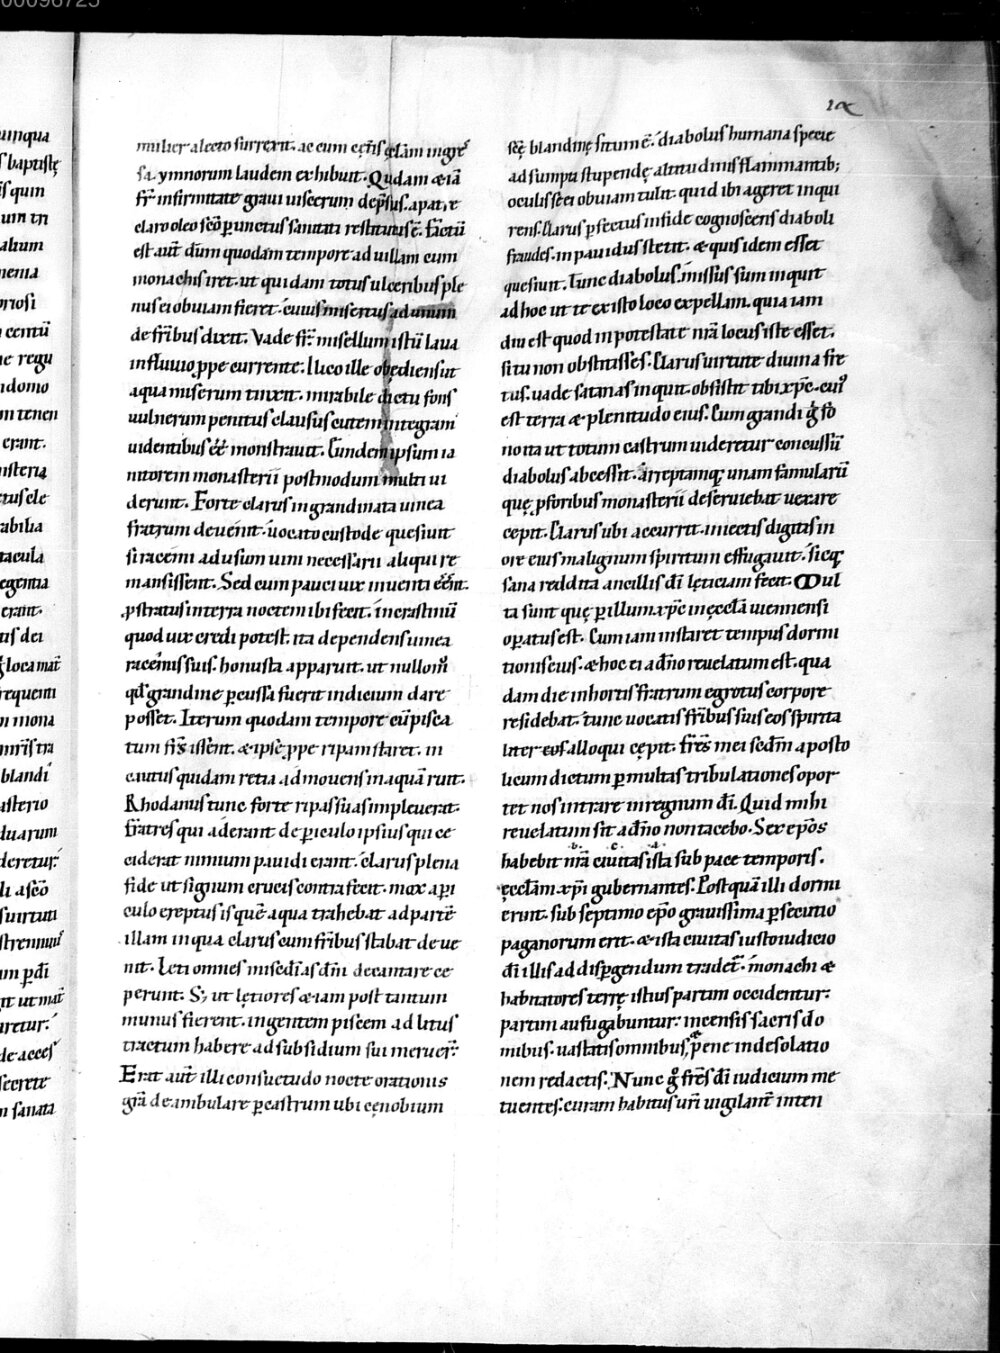 00098725
uinqua
s baptistę
is quin
um in
alium
menia
oriosi
centū
ne regu
ndomo
m tenen
erant.
nsteria
etus ele
abilia
tacula
egentia
erant.
us dei
loca mat̄
requenti
n mona
mr̄istra
blandi
asterio
duarum
deretur.
li a sc̄o
suirtuti
strennuuſ
um p̄ dī
it ut mat̄
aretur.
de acces
secrete
n sanata
ix
mulier a lecto surrexit. ac eum cęt̄is ęclām ingres
sa. ymnorum laudem exhibuit. Qudam & iā
fr̄ infirmitate graui uiscerum dep̄sus. a patre
claro oleo sc̄o ꝑunctus sanitati restitutus ē. factū
est aut̄ dum quodam tempore ad uillam cum
monachis iret. ut quidam totus ulceribus ple
nus ei obuiam fieret. cuius misertus ad unum
de frīb; dixit. Vade fr̄ misellum istū laua
in fluuio ꝓpe currente. Iluco ille obediens ut
aqua miserum tinxit. mirabile dictu fons
uulnerum penitus clausus cutem integram
uidentibus eē monstrauit. Eundem ipsum ia
nitorem monasterii postmodum multi ui
derunt. Forte clarus in grandinata uinea
fratrum deuenit. uocato custode quesiuit
si racemi ad usum uini necessarii aliqui re
mansissent. Sed cum pauci uix inuenti eēnt.
ꝓstratus in terra noctem ibi fecit. in crastinū
quod uix credi potest. ita dependens uinea
racemis suis. honusta apparuit. ut nullom̄
qd̄ grandine ꝑcussa fuerit indicium dare
posset. Iterum quodam tempore cū pisca
tum frīs issent. & ipse ꝓpe ripam staret. in
cautus quidam retia admouens in aquā ruit.
Rhodanus tunc forte ripas suas impleuerat.
fratres qui aderant de ꝑiculo ipsius qui ce
ciderat nimium pauidi erant. clarus plena
fide ut signum crucis contra fecit. mox a ꝑi
culo ereptus is quē aqua trahebat ad partē
illam in qua clarus cum frībus stabat deue
nit. Leti omnes misedīas dn̄i decantare ce
perunt. S; ut lętiores & iam post tantum
munus fierent. ingentem piscem ad litus
tractum habere ad subsidium sui meruer̄.
Erat aut̄ illi consuetudo nocte orationis
grā deambulare ꝑ castrum ubi cęnobium
sc̄ę blandinę situm ē. diabolus humana specie
adsumpta stupendę altitudinis flammantib;
oculis sc̄ei obuiam tulit. quid ibi ageret inqui
rens. Clarus ꝑfectus in fide cognoscens diaboli
fraudes. inpauidus stetit. & quis idem esset
quesiuit. Tunc diabolus. missus sum inquit
ad hoc ut te ex isto loco expellam. quia iam
diu est quod in potestate nr̄a locus iste esset.
si tu non obstitisses. Clarus uirtute diuina fre
tus. uade satanas inquit. obsistit tibi xp̄c. cuiꝰ
est terra & plenitudo eius. Cum grandi g̊ so
no ita ut totum castrum uideretur concussū
diabolus abcessit. arreptamq; unam famularū
quę ꝓ foribus monasterii deseruiebat uexare
cepit. Clarus ubi accurrit. iniectis digitis in
ore eius malignum spiritum effugauit. sicq;
sana reddita ancillis dī lętitiam fecit. Mul
ta sunt quę ꝑ illum xp̄c in ęcclā uiennensi
oꝑatus est. Cum iam instaret tempus dormi
tionis eius. & hoc ei a dn̄o reuelatum est. qua
dam die in hortis fratrum egrotus corpore
residebat. tunc uocatis frībus suis eos spirita
liter eos alloqui cępit. fr̄es mei sedm̄ aposto
licum dictum ꝑ multas tribulationes opor
tet nos intrare in regnum dī. Quid mihi
reuelatum sit a dn̄o non tacebo. Sex ep̄os
habebit nr̄a ciuitas ista sub pace temporis.
ęcclām xp̄i gubernantes. Postquā illi dormi
erunt. sub septimo ep̄o grauissima ꝑsecutio
paganorum erit. & ista ciuitas iusto iudicio
dī illis ad dispgendum tradet̄. monachi &
habitatores terrę istius partim occidentur.
partim aufugabuntur. incensis sacris do
mibus. uastatis omnibus, & pene in desolatio
nem redactis. Nunc g̊ fr̄es dī iudicium me
tuentes. curam habitus ur̄i uigilant̄ inten